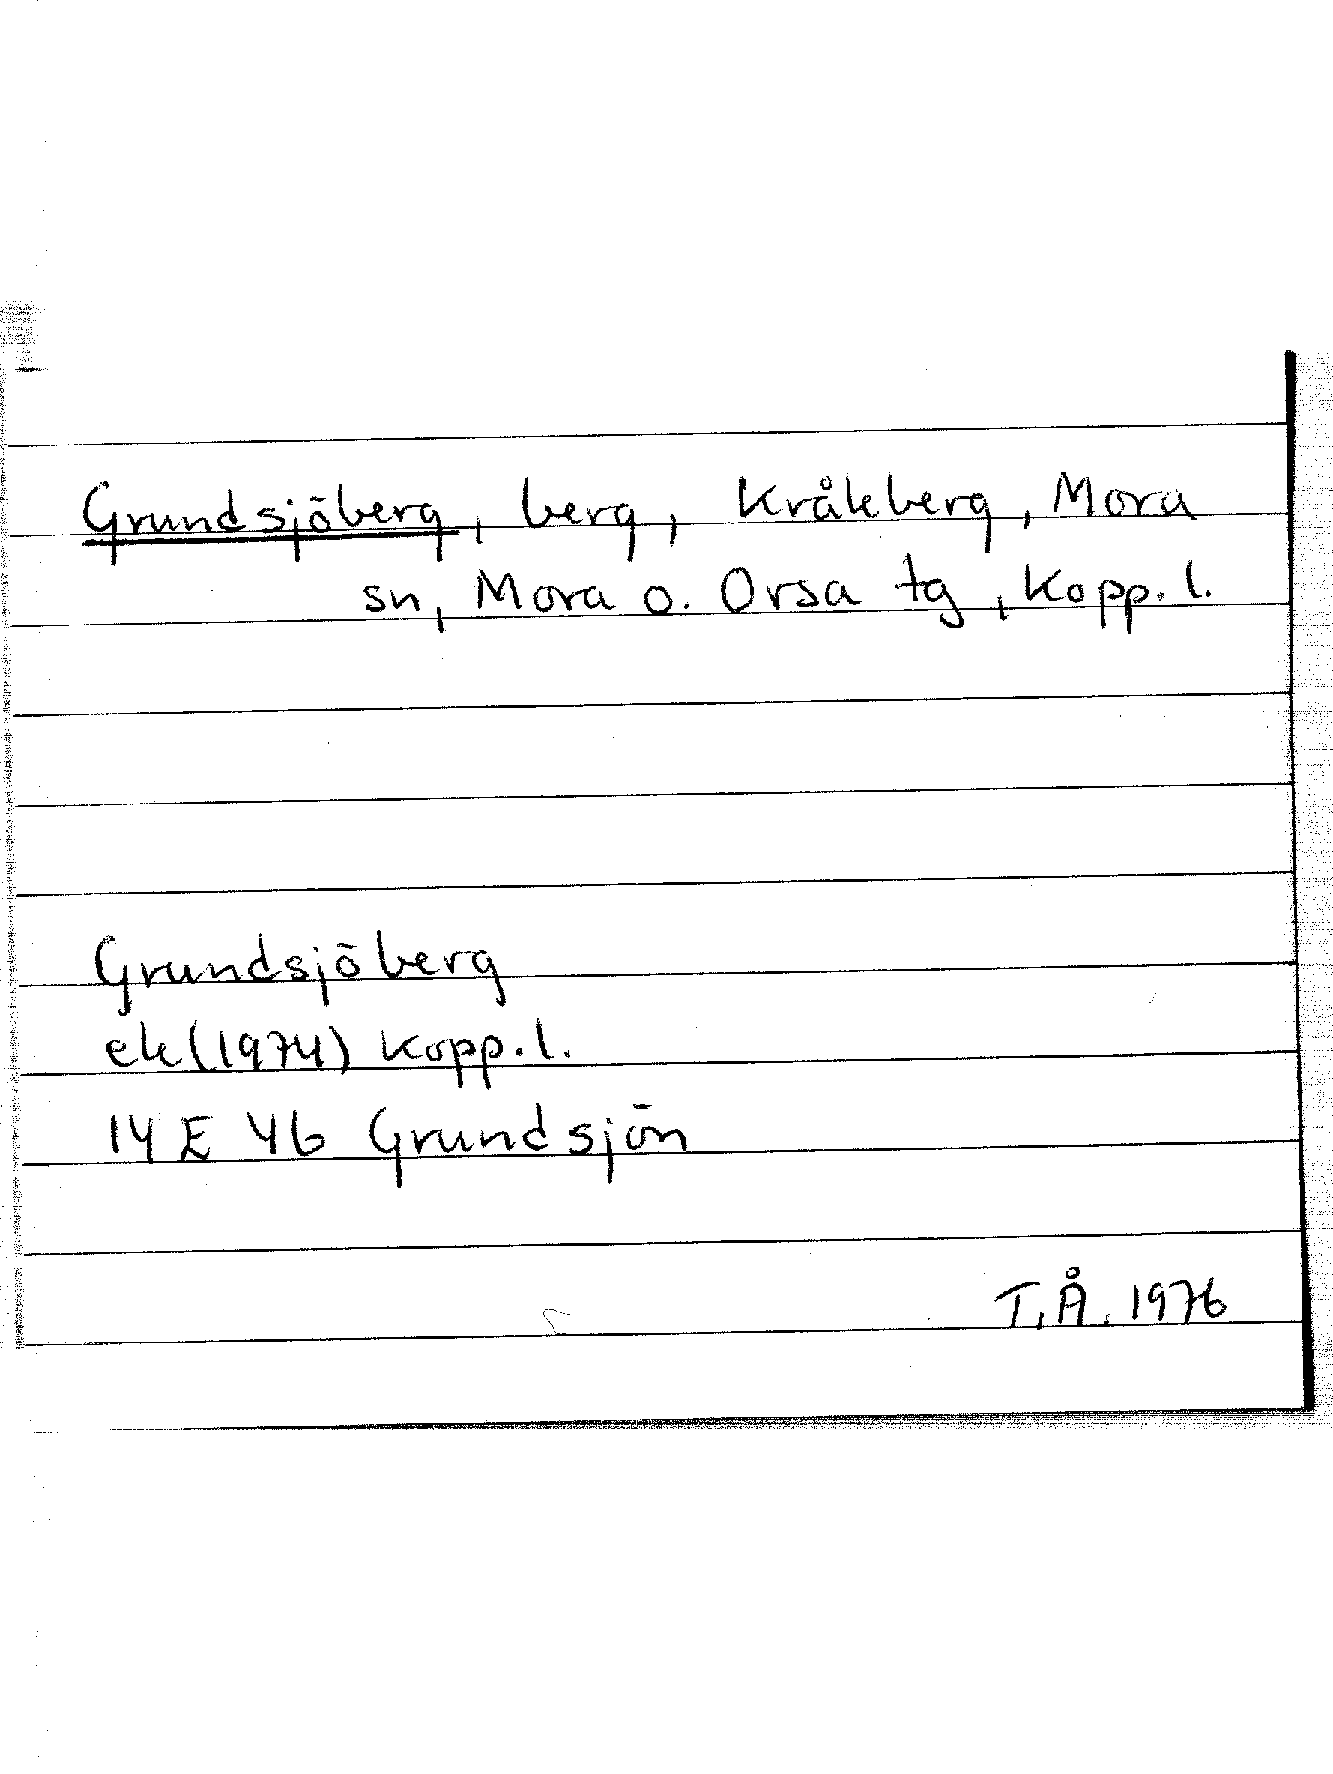 Grundsjöberg, berg, Kråkberg, Mora
sn, Mora o. Orsa tg, Kopp. l.
Grundsjöberg
ek (1974) Kopp. l.
14 E 4b Grundsjön
T.Å. 1976